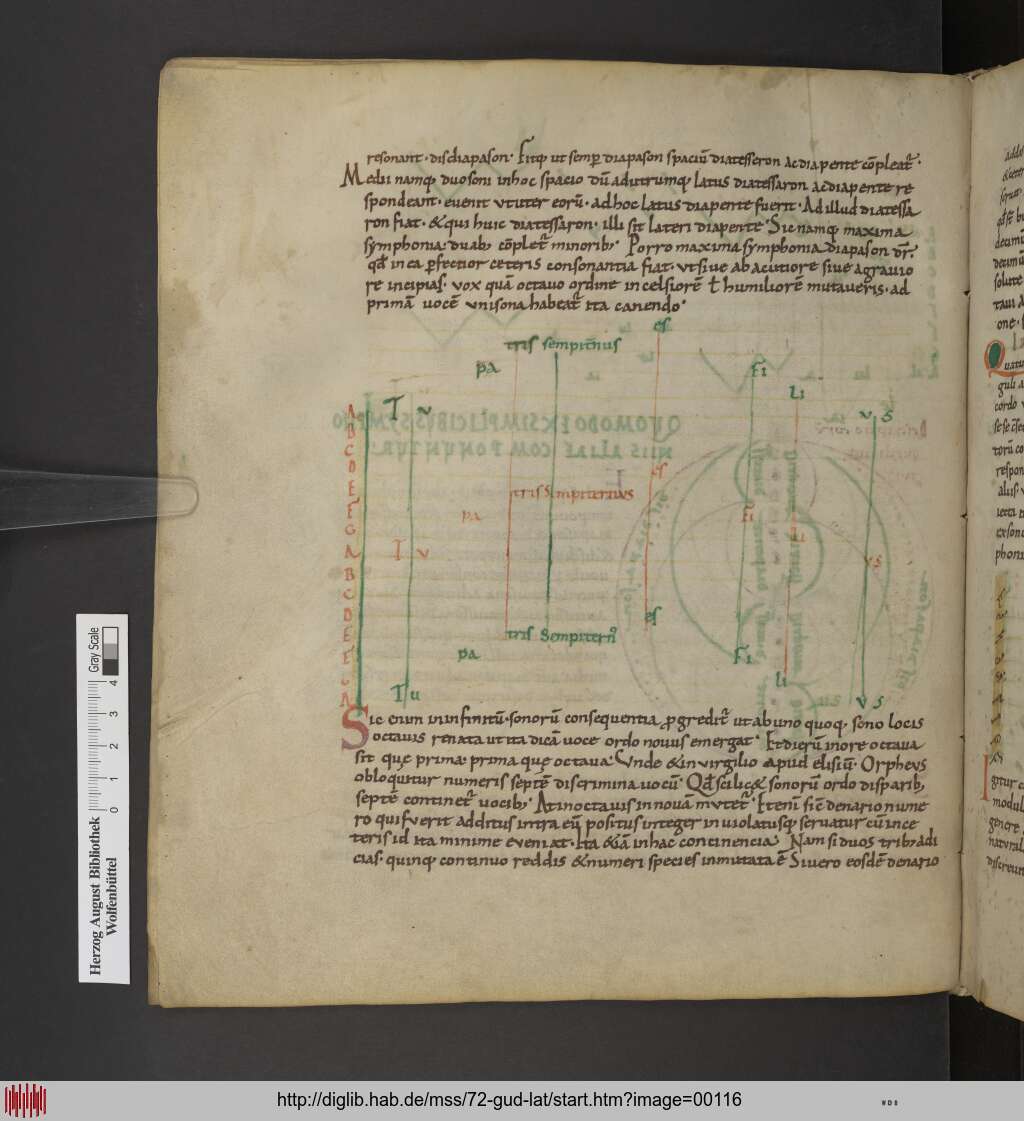 resonant · disdiapason · Fitq; ut semp diapason spaciū diatesseron ac diapente cōpleat̄ ·
Medii namq; duo soni in hoc spacio dū ad utrumq; latus diatessaron ac diapente re
spondeant · euenit ut uter eorū · ad hoc latus diapente fuerit · Ad illud diatessa
ron fiat · & qui huic diatessaron · illi sit lateri diapente · Sic namq; maxima
symphonia · duab; cōplet̄ minorib; · Porro maxima symphonia diapason dr̄ ·
qđ in ea pfectior ceteris consonantia fiat · ut siue ab acutiore siue a grauio
re incipias · vox quā octauo ordine in celsiorē ł humiliorē mutaueris · ad
primā uocē unisona habeat̄ ita canendo ·
es
tris sempit̄nus
pa
Fi
Li
T u
v s
A
B
C
D
E
F
G
A
B
C
D
E
F
G
A
es
tris Sempiternus
pa
Fi
Li
T u
v s
es
tris Sempitern9
pa
Fi
Li
T u
v s
Sic enim in infinitū · sonorū consequentia pgredit̄ ut ab uno quoq; sono locis
octauis renata ut ita dicā uoce ordo nouus emergat · Et dierū more octaua
sit quę prima · prima quę octaua · Unde & in uirgilio apud elisiū · Orpheus
obloquitur numeris septē discrimina uocū · Qđ scilic& sonorū ordo disparib;
septē continet̄ uocib; · At in octauis in nouā mutet̄ · Etenī sic denario nume
ro qui fuerit additus intra eū positus integer inuiolatusq; seruatur cū in ce
teris id ita minime eueniat · Ita &iā in hac concinencia · Nam si duos tribradi
cias · quinq; continuo reddis & numeri species inmutata ē Si uero eosdē denario
Herzog August Bibliothek
Wolfenbüttel
0 1 2 3 4
Gray Scale
http://diglib.hab.de/mss/72-gud-lat/start.htm?image=00116